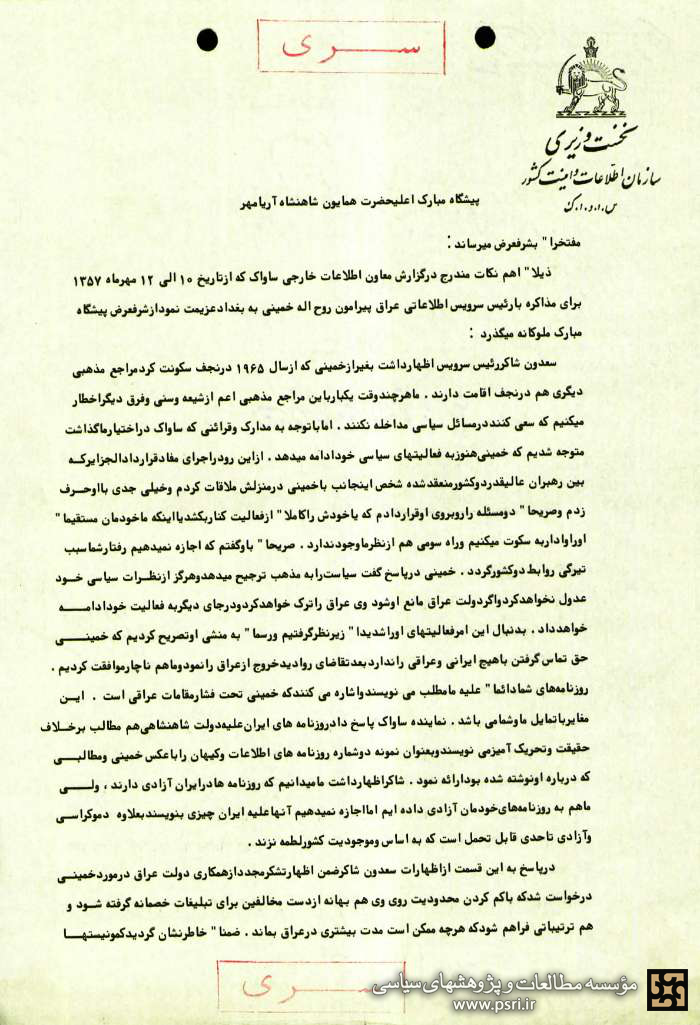 سری
نخست وزیری
سازمان اطلاعات و امنیت کشور
س.ا.و.ا.ک
پیشگاه مبارک اعلیحضرت همایون شاهنشاه آریامهر
مفتخرا" بشرفعرض میرساند :
ذیلا" اهم نکات مندرج درگزارش معاون اطلاعات خارجی ساواک که ازتاریخ ۱۰ الی ۱۲ مهرماه ۱۳۵۷
برای مذاکره بارئیس سرویس اطلاعاتی عراق پیرامون روح اله خمینی به بغدادعزیمت نمودازشرفعرض پیشگاه
مبارک ملوکانه میگذرد :
سعدون شاکررئیس سرویس اظهارداشت بغیرازخمینی که ازسال ۱۹۶۵ درنجف سکونت کردمراجع مذهبی
دیگری هم درنجف اقامت دارند . ماهرچندوقت یکبارباین مراجع مذهبی اعم ازشیعه وسنی وفرق دیگراخطار
میکنیم که سعی کننددرمسائل سیاسی مداخله نکنند . اماباتوجه به مدارک وقرائنی که ساواک دراختیارماگذاشت
متوجه شدیم که خمینی هنوزبه فعالیتهای سیاسی خودادامه میدهد . ازاین رودراجرای مفادقراردادالجزایرکه
بین رهبران عالیقدردوکشورمنعقدشده شخص اینجانب باخمینی درمنزلش ملاقات کردم وخیلی جدی بااوحرف
زدم وصریحا" دومسئله راروبروی اوقراردادم که یاخودش راکاملا" ازفعالیت کناربکشدیااینکه ماخودمان مستقیما"
اوراواداربه سکوت میکنیم وراه سومی هم ازنظرماوجودندارد . صریحا" باوگفتم که اجازه نمیدهیم رفتارشماسبب
تیرگی روابط دوکشورگردد . خمینی درپاسخ گفت سیاست‌رابه مذهب ترجیح میدهدوهرگز ازنظرات سیاسی خود
عدول نخواهدکردواگردولت عراق مانع اوشود وی عراق راترک خواهدکردودرجای دیگربه فعالیت خودادامه
خواهدداد . بدنبال این امرفعالیتهای اوراشدیدا" زیرنظرگرفتیم ورسما" به منشی اوتصریح کردیم که خمینی
حق تماس گرفتن باهیچ ایرانی وعراقی رانداردبعدتقاضای روادیدخروج ازعراق رانمودوماهم ناچارموافقت کردیم .
روزنامه‌های شمادائما" علیه مامطلب می نویسندواشاره می کنندکه خمینی تحت فشارمقامات عراقی است . این
مغایرباتمایل ماوشمامی باشد . نماینده ساواک پاسخ دادروزنامه های ایران‌علیه‌دولت شاهنشاهی‌هم مطالب برخلاف
حقیقت وتحریک آمیزمی نویسندوبعنوان نمونه دوشماره روزنامه های اطلاعات وکیهان راباعکس خمینی ومطالبی
که درباره اونوشته شده بودارائه نمود . شاکراظهارداشت مامیدانیم که روزنامه هادرایران آزادی دارند ، ولی
ماهم به روزنامه‌های‌خودمان آزادی داده ایم امااجازه نمیدهیم آنهاعلیه ایران چیزی بنویسندبعلاوه دموکراسی
وآزادی تاحدی قابل تحمل است که به اساس وموجودیت کشورلطمه نزند .
درپاسخ به این قسمت ازاظهارات سعدون شاکرضمن اظهارتشکرمجددازهمکاری دولت عراق درموردخمینی
درخواست شدکه باکم کردن محدودیت روی وی هم بهانه ازدست مخالفین برای تبلیغات خصمانه گرفته شود و
هم ترتیباتی فراهم شودکه هرچه ممکن است مدت بیشتری درعراق بماند . ضمنا" خاطرنشان گردیدکمونیستها
سری
مؤسسه مطالعات و پژوهشهای سیاسی
www.psri.ir